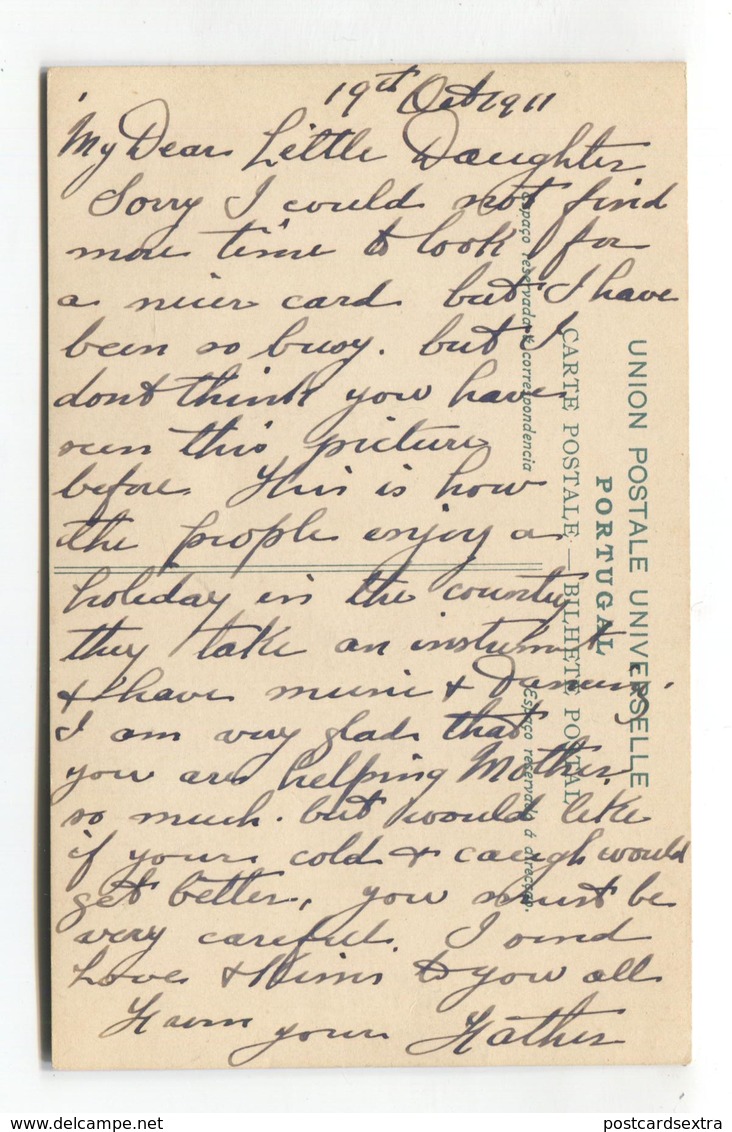 19st Oct 1911
My Dear Little Daughter
Sorry I could not find
more time to look for
a nicer card but I have
been so busy. but I
dont think you have
seen this picture
before This is how
the people enjoy a
holiday in the country
they take an instrumt
& have music & Dancing.
I am very glad that
you are helping Mother
so much. but would like
if your cold & cough would
get better, you must be
very careful. I send
Love & Kisses to you all
From your Father
UNION POSTALE UNIVERSELLE
PORTUGAL
CARTE POSTALE — BILHETE POSTAL
Espaço reservado á correspondencia
Espaço reservado á direcção.
delcampe.net
postcardsextra